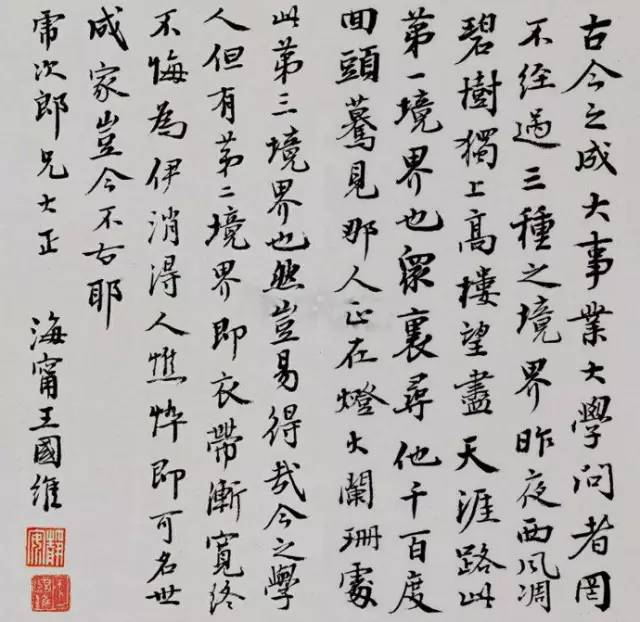 古今之成大事業大學問者罔
不經過三種之境界昨夜西風凋
碧樹獨上高樓望盡天涯路此
第一境界也眾裏尋他千百度
回頭驀見那人正在燈火闌珊處
此第三境界也然豈易得哉今之學
人但有第二境界即衣帶漸寬終
不悔為伊消得人憔悴即可名世
成家豈今不古耶
次郎兄大正
海甯王國維
靜安